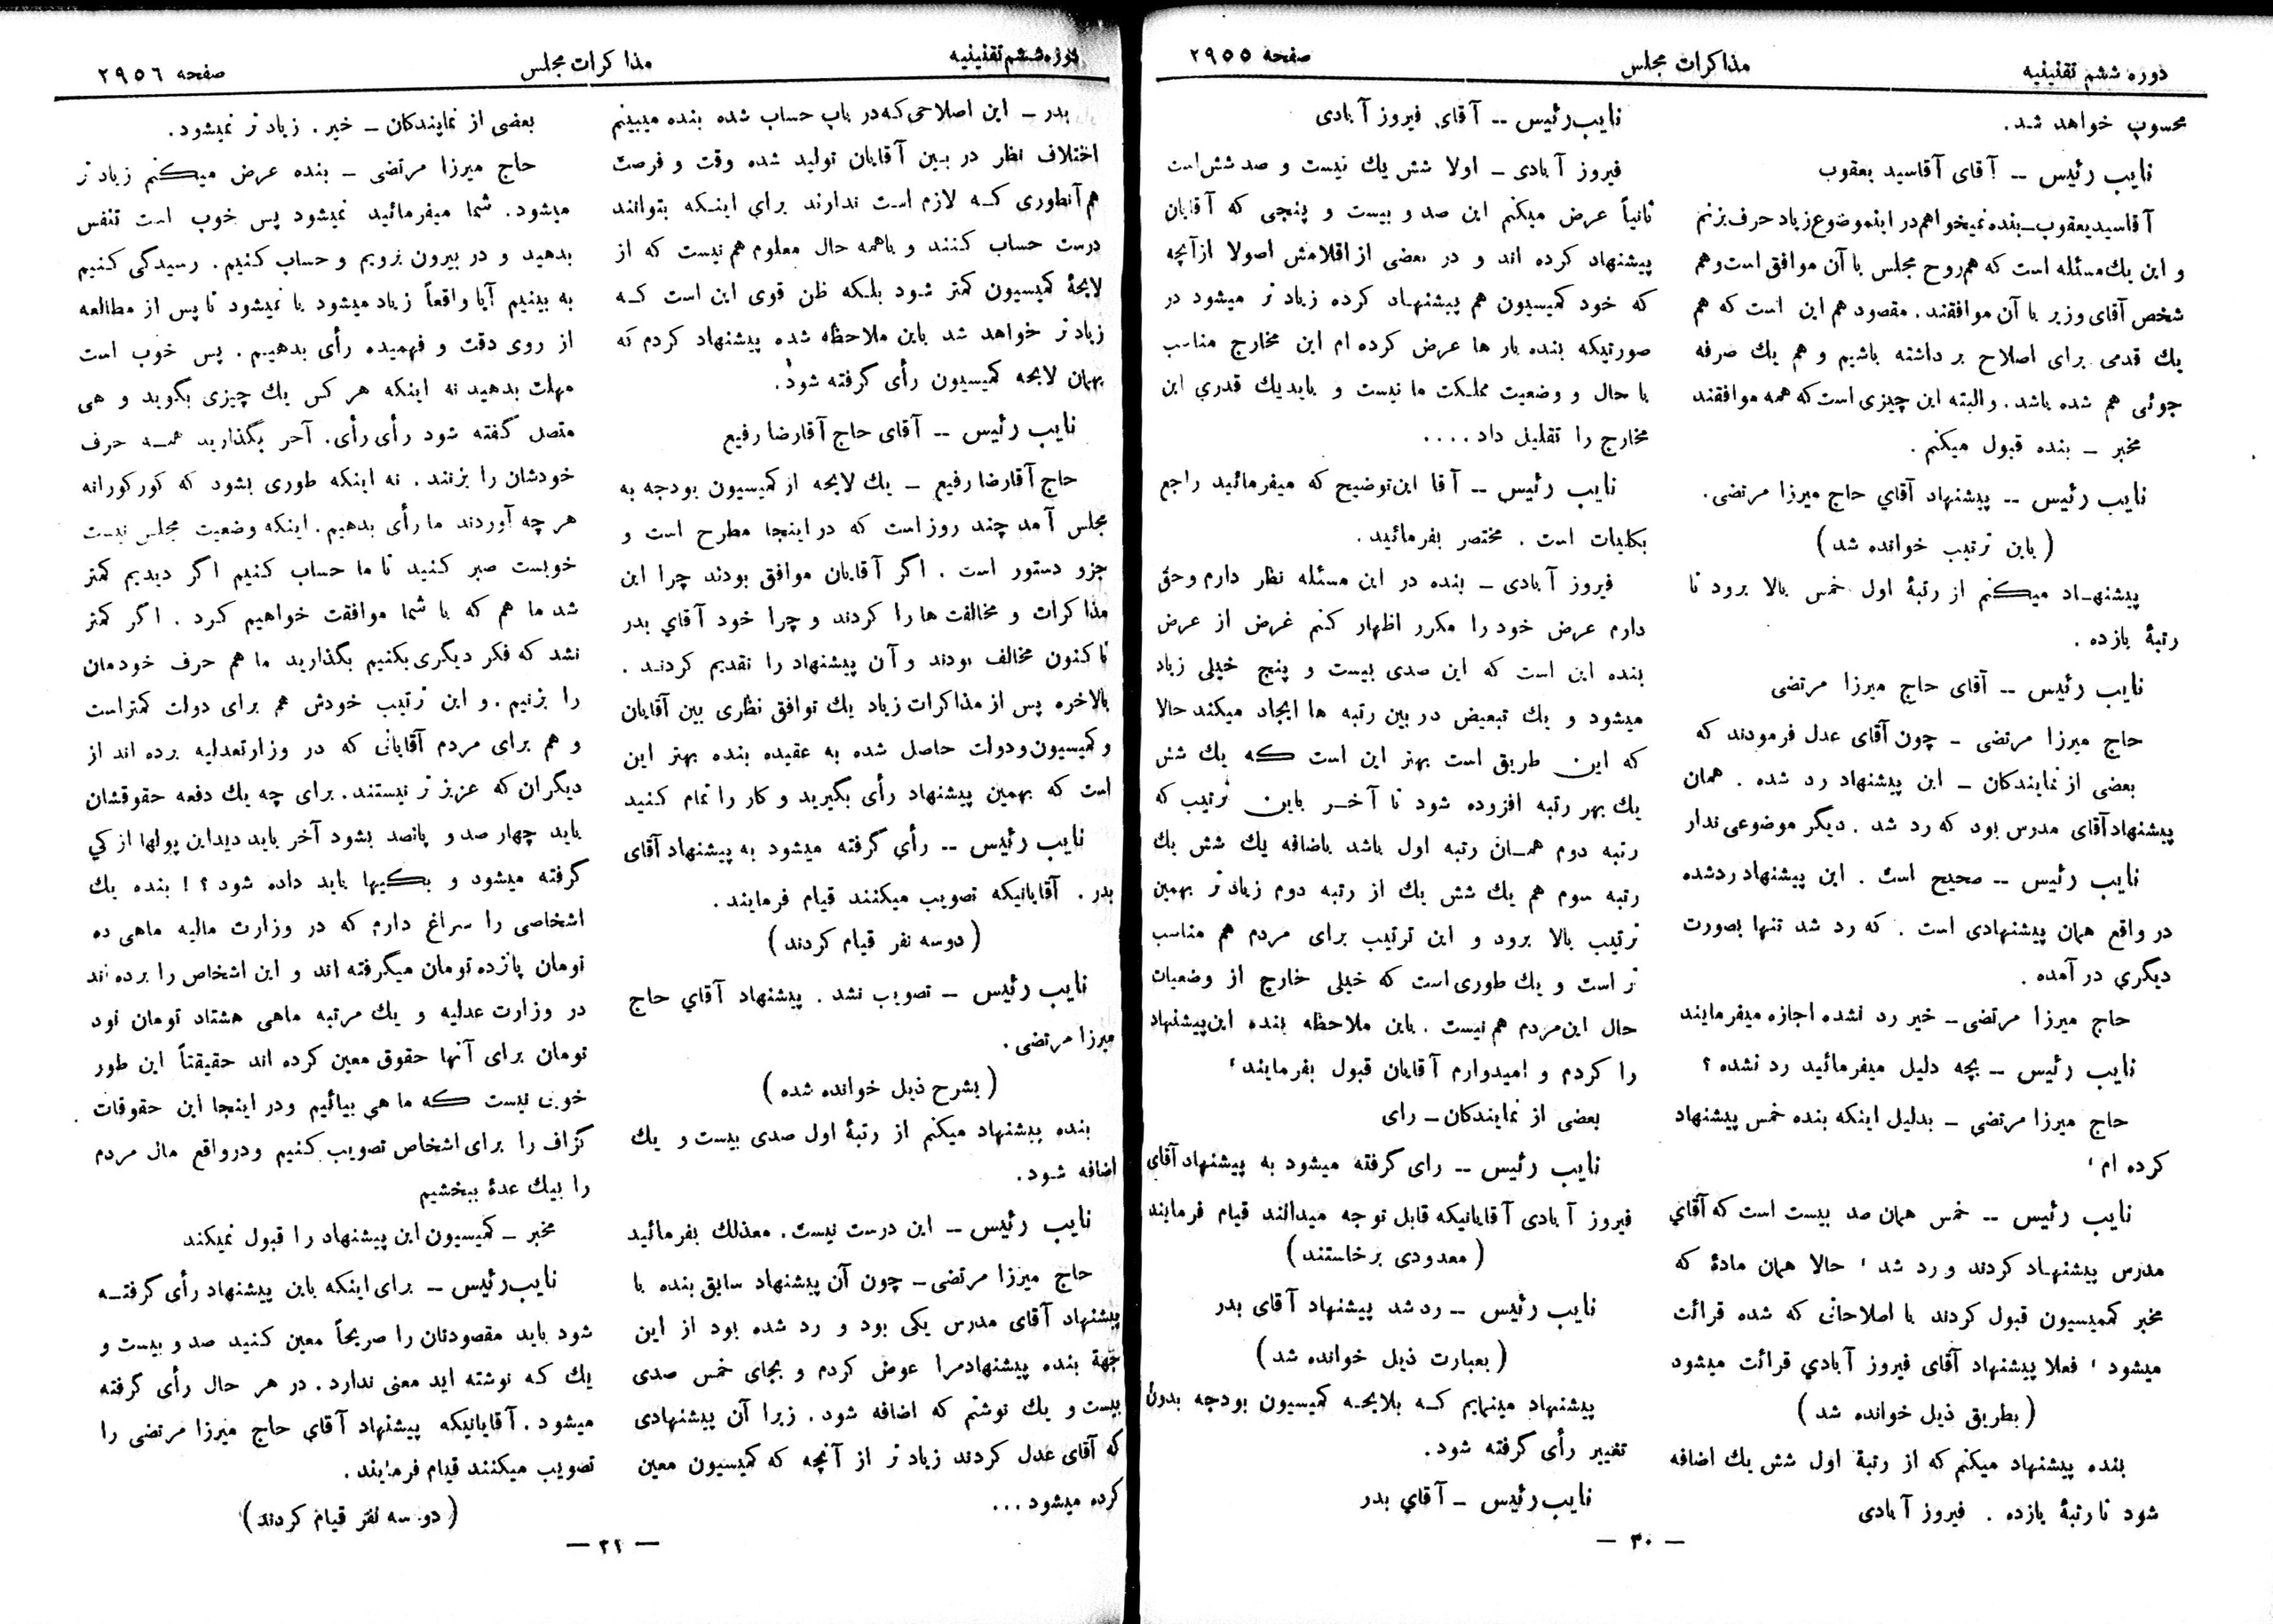 دوره ششم تقنینیه
مذاکرات مجلس
صفحه ۲۹۵۵
محسوب خواهد شد.
نایب رئیس -- آقای آقاسید یعقوب
آقاسیدیعقوب-بنده نمیخواهم در اینموضوع زیاد حرف بزنم
و این یك مسئله است که هم روح مجلس با آن موافق است و هم
شخص آقای وزیر با آن موافقند. مقصود هم این است که هم
یك قدمی برای اصلاح بر داشته باشیم و هم یك صرفه
جوئی هم شده باشد. والبته این چیزی است که همه موافقند
مخبر - بنده قبول میکنم.
نایب رئیس -- پیشنهاد آقاي حاج میرزا مرتضی.
(باین ترتیب خوانده شد)
پیشنهاد میکنم از رتبهٔ اول خمس بالا برود تا
رتبهٔ یازده.
نایب رئیس -- آقای حاج میرزا مرتضی
حاج میرزا مرتضی - چون آقای عدل فرمودند که
بعضی از نمایندکان - این پیشنهاد رد شده. همان
پیشنهاد آقای مدرس بود که رد شد. دیگر موضوعی ندار
نایب رئیس -- صحیح است. این پیشنهاد ردشده
در واقع همان پیشنهادی است. که رد شد تنها بصورت
دیگري در آمده.
حاج میرزا مرتضی- خیر رد نشده اجازه میفرمایند
نایب رئیس -- بچه دلیل میفرمائید رد نشده؟
حاج میرزا مرتضی - بدلیل اینکه بنده خمس پیشنهاد
کرده ام،
نایب رئیس -- خمس همان صد بیست است که آقاي
مدرس پیشنهاد کردند و رد شد، حالا همان مادهٔ که
مخبر کممیسیون قبول کردند با اصلاحاتی که شده قرائت
میشود، فعلا پیشنهاد آقای فیروز آبادي قرائت میشود
(بطریق ذیل خوانده شد)
بنده پیشنهاد میکنم که از رتبهٔ اول شش یك اضافه
شود تا رتبهٔ یازده. فیروز آبادی
نایب رئیس -- آقای فیروز آبادی
فیروز آبادی - اولا شش یك نیست و صد شش است
ثانیاً عرض میکنم این صد و بیست و پنجی که آقایان
پیشنهاد کرده اند و در بعضی از اقلامش اصولا از آنچه
که خود کمیسیون هم پیشنهاد کرده زیاد تر میشود در
صورتیکه بنده بار ها عرض کرده ام این مخارج مناسب
با حال و وضعیت مملکت ما نیست و باید یك قدري این
مخارج را تقلیل داد....
نایب رئیس -- آقا این توضیح که میفرمائید راجع
بکلیات است. مختصر بفرمائید.
فیروز آبادی - بنده در این مسئله نظر دارم و حق
دارم عرض خود را مکرر اظهار کنم غرض از عرض
بنده این است که این صدی بیست و پنج خیلی زیاد
میشود و یك تبعیض در بین رتبه ها ایجاد میکند حالا
که این طریق است بهتر این است که یك شش
یك بهر رتبه افزوده شود تا آخر باین ترتیب که
رتبه دوم همان رتبه اول باشد باضافه یك شش یك
رتبه سوم هم یك شش یك از رتبه دوم زیاد تر بهمین
ترتیب بالا برود و این ترتیب برای مردم هم مناسب
تر است و یك طوری است که خیلی خارج از وضعیات
حال این مردم هم نیست. باین ملاحظه بنده این پیشنهاد
را کردم و امیدوارم آقایان قبول بفرمایند،
بعضی از نمایندکان- رای
نایب رئیس -- رای گرفته میشود به پیشنهاد آقای
فیروز آبادی آقایانیکه قابل توجه میدانند قیام فرمایند
(معدودی برخاستند)
نایب رئیس -- رد شد پیشنهاد آقای بدر
(بعبارت ذیل خوانده شد)
پیشنهاد مینمایم که بلایحه کمیسیون بودجه بدون
تغییر رأی گرفته شود.
نایب رئیس - آقاي بدر
- ۳۰ -
دوره ششم تقنینیه
مذاکرات مجلس
صفحه ۲۹۵۶
بدر - این اصلاحی که در باب حساب شده بنده میبینم
اختلاف نظر در بین آقایان تولید شده وقت و فرصت
هم آنطوری که لازم است ندارند براي اینکه بتوانند
درست حساب کنند و باهمه حال معلوم هم نیست که از
لایحهٔ کمیسیون کمتر شود بلکه ظن قوی این است که
زیاد تر خواهد شد باین ملاحظه شده پیشنهاد کردم که
بهمان لایحه کمیسیون رأی گرفته شود.
نایب رئیس -- آقای حاج آقارضا رفیع
حاج آقارضا رفیع - یك لایحه از کمیسیون بودجه به
مجلس آمد چند روز است که در اینجا مطرح است و
جزو دستور است. اگر آقایان موافق بودند چرا این
مذاکرات و مخالفت ها را کردند و چرا خود آقاي بدر
تا کنون مخالف بودند و آن پیشنهاد را تقدیم کردند.
بالاخره پس از مذاکرات زیاد یك توافق نظری بین آقایان
و کمیسیون و دولت حاصل شده به عقیده بنده بهتر این
است که بهمین پیشنهاد رأی بگیرید و کار را تمام کنید
نایب رئیس -- رأي گرفته میشود به پیشنهاد آقای
بدر. آقایانیکه تصویب میکنند قیام فرمایند.
(دوسه نفر قیام کردند)
نایب رئیس - تصویب نشد. پیشنهاد آقاي حاج
میرزا مرتضی.
(بشرح ذیل خوانده شده)
بنده پیشنهاد میکنم از رتبهٔ اول صدی بیست و یك
اضافه شود.
نایب رئیس - این درست نیست. معذلك بفرمائید
حاج میرزا مرتضی- چون آن پیشنهاد سابق بنده با
پیشنهاد آقای مدرس یکی بود و رد شده بود از این
جهة بنده پیشنهادمرا عوض کردم و بجای خمس صدی
بیست و یك نوشتم که اضافه شود. زیرا آن پیشنهادی
که آقای عدل کردند زیاد تر از آنچه که کمیسیون معین
کرده میشود...
بعضی از نمایندکان - خیر. زیاد تر نمیشود.
حاج میرزا مرتضی - بنده عرض میکنم زیاد تر
میشود. شما میفرمائید نمیشود پس خوب است تنفس
بدهید و در بیرون برویم و حساب کنیم. رسیدگی کنیم
به بینیم آیا واقعاً زیاد میشود یا نمیشود تا پس از مطالعه
از روی دقت و فهمیده رأی بدهیم. پس خوب است
مهلت بدهید نه اینکه هر کس یك چیزی بگوید و هی
متصل گفته شود رأی رأی. آخر بگذارید همه حرف
خودشان را بزنند. نه اینکه طوری بشود که کورکورانه
هر چه آوردند ما رأی بدهیم. اینکه وضعیت مجلس نیست
خوبست صبر کنید تا ما حساب کنیم اگر دیدیم کمتر
شد ما هم که با شما موافقت خواهیم کرد. اگر کمتر
نشد که فکر دیگری بکنیم بگذارید ما هم حرف خودمان
را بزنیم. و این ترتیب خودش هم برای دولت کمتر است
و هم برای مردم آقایانی که در وزارتعدلیه برده اند از
دیگران که عزیز تر نیستند. برای چه یك دفعه حقوقشان
باید چهار صد و پانصد بشود آخر باید دید این پولها از کي
گرفته میشود و بکیها باید داده شود؟! بنده یك
اشخاصی را سراغ دارم که در وزارت مالیه ماهی ده
تومان پانزده تومان میگرفته اند و این اشخاص را برده اند
در وزارت عدلیه و یك مرتبه ماهی هشتاد تومان نود
تومان برای آنها حقوق معین کرده اند حقیقتاً این طور
خوب نیست که ما هي بیائیم و در اینجا این حقوقات
گزاف را برای اشخاص تصویب کنیم و درواقع مال مردم
را بیك عدهٔ ببخشیم
مخبر - کمیسیون این پیشنهاد را قبول نمیکند
نایب رئیس -- برای اینکه باین پیشنهاد رأی گرفته
شود باید مقصودتان را صریحاً معین کنید صد و بیست و
یك که نوشته اید معنی ندارد. در هر حال رأی گرفته
میشود. آقایانیکه پیشنهاد آقاي حاج میرزا مرتضی را
تصویب میکنند قیام فرمایند.
(دو سه نفر قیام کردند)
- ۳۱ -